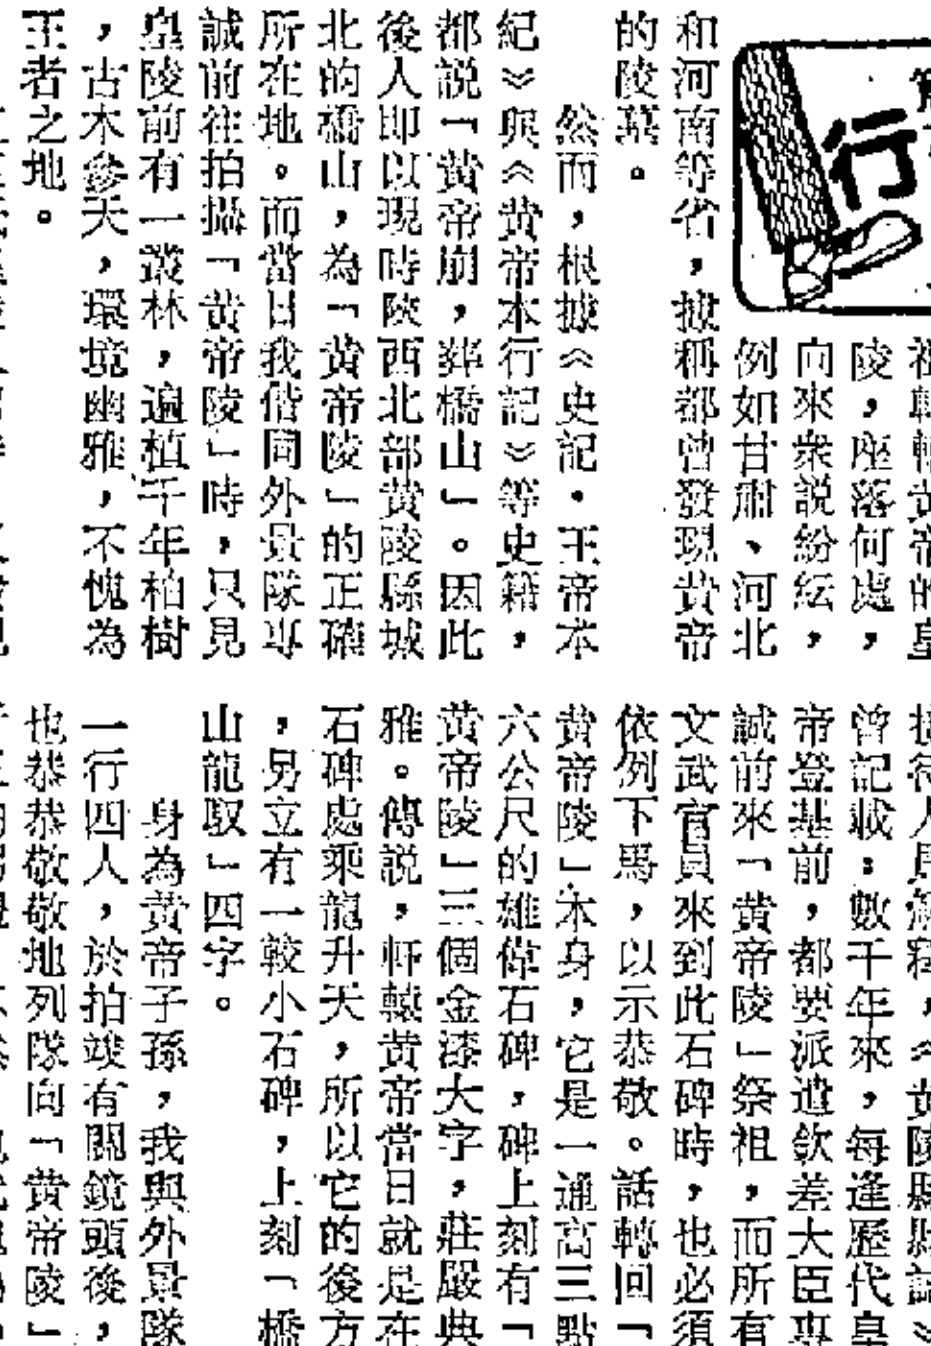 行
祖軒轅黃帝的皇
陵，座落何處，
向來衆説紛紜，
例如甘肅、河北
和河南等省，據稱都曾發現黃帝
的陵墓。
然而，根據《史記·王帝本
紀》與《黃帝本行記》等史籍，
都説「黃帝崩，葬橋山」。因此
後人即以現時陝西北部黃陵縣城
北的橋山，為「黃帝陵」的正確
所在地。而當日我偕同外景隊專
誠前往拍攝「黃帝陵」時，只見
皇陵前有一叢林，遍植千年柏樹
，古木參天，環境幽雅，不愧為
王者之地。
接待人員解釋，《黃陵縣縣誌》
曾記載：數千年來，每逢歷代皇
帝登基前，都要派遣欽差大臣專
誠前來「黃帝陵」祭祖，而所有
文武官員來到此石碑時，也必須
依例下馬，以示恭敬。話轉回「
黃帝陵」本身，它是一通高三點
六公尺的雄偉石碑，碑上刻有「
黃帝陵」三個金漆大字，莊嚴典
雅。傳説，軒轅黃帝當日就是在
石碑處乘龍升天，所以它的後方
，另立有一較小石碑，上刻「橋
山龍馭」四字。
身為黃帝子孫，我與外景隊
一行四人，於拍竣有關鏡頭後，
也恭恭敬敬地列隊向「黃帝陵」